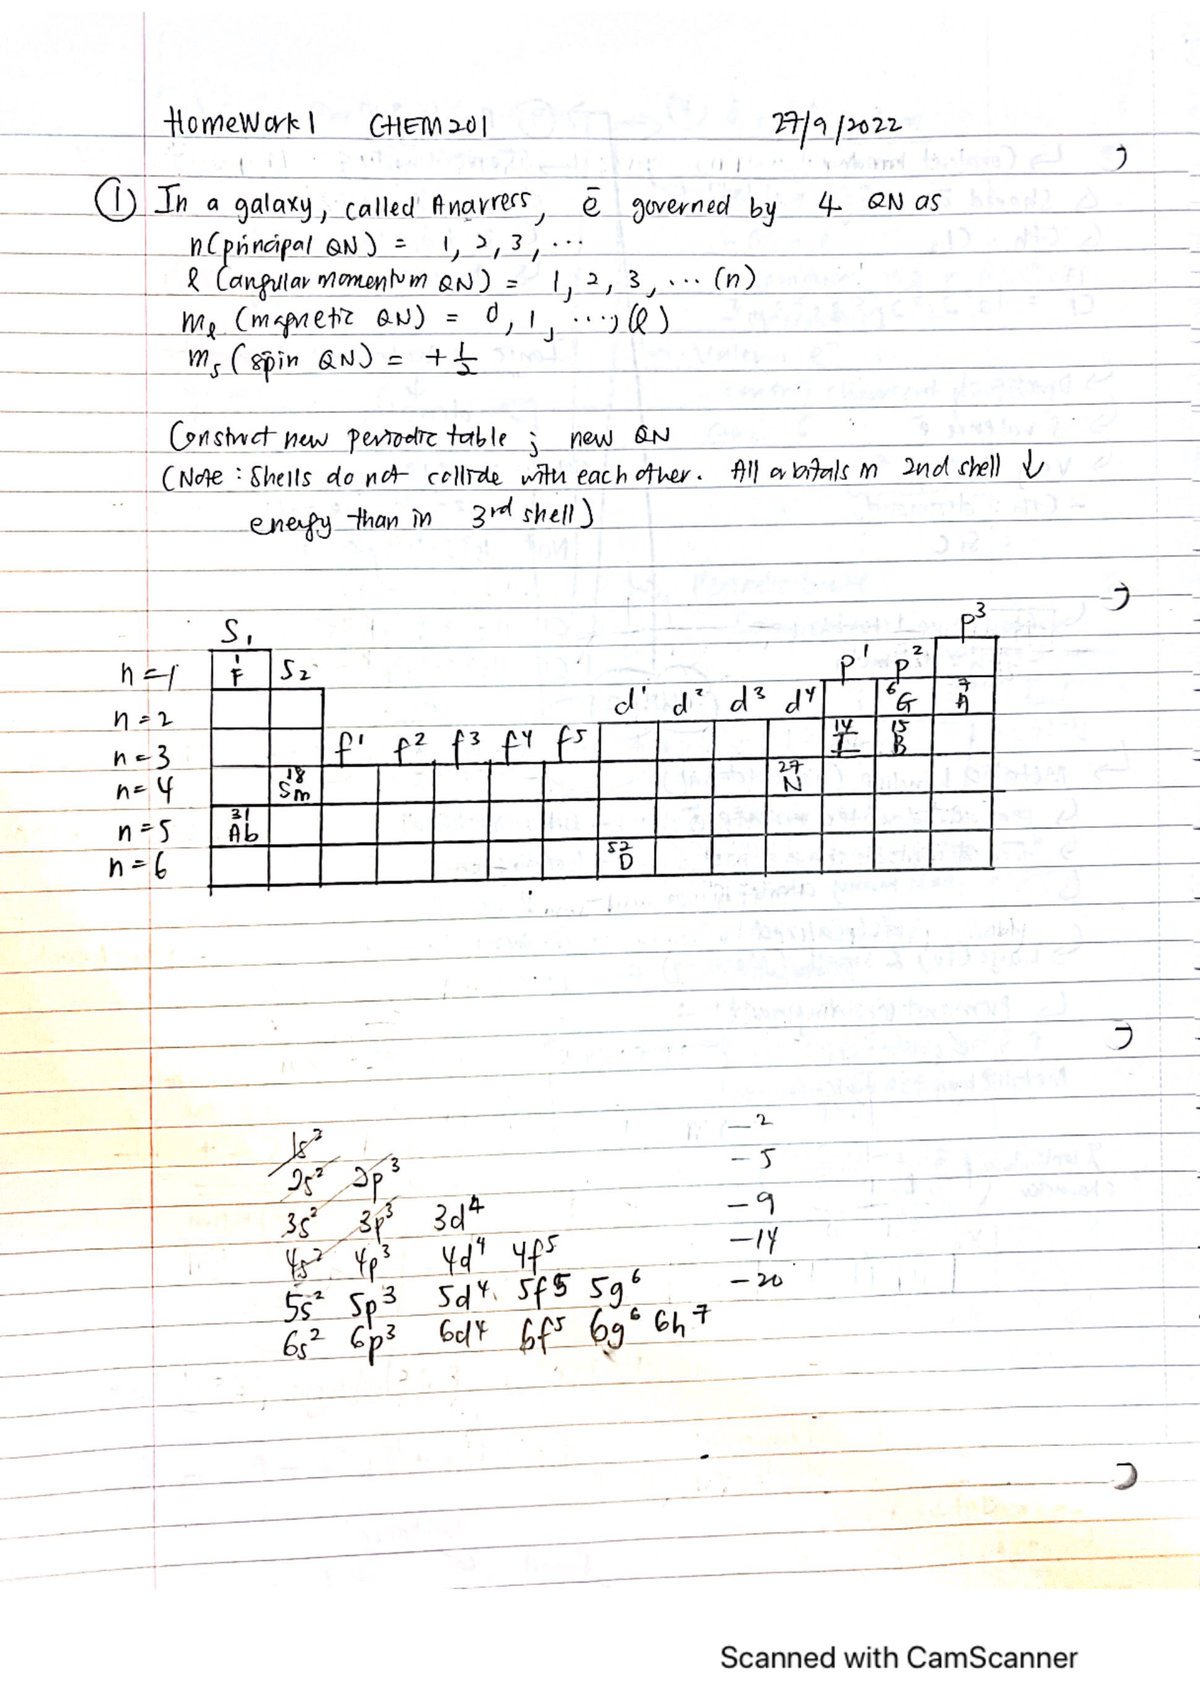 Homework 1 CHEM 201 27/9/2022
① In a galaxy, called Anarress, ē governed by 4 QN as
n (principal QN) = 1, 2, 3, ...
l (angular momentum QN) = 1, 2, 3, ... (n)
mℓ (magnetic QN) = 0, 1, ..., (l)
ms (spin QN) = + 1/2
Construct new periodic table ; new QN
(Note : Shells do not collide with each other. All orbitals in 2nd shell ↓
energy than in 3rd shell)
S1 p3
n=1 1 F S2 p1 p2
n=2 d1 d2 d3 d4 6 G 7 A
n=3 f1 f2 f3 f4 f5 14 I 15 B
n=4 18 Sm 27 N
n=5 31 Ab
n=6 52 D
1s2 - 2
2s2 2p3 - 5
3s2 3p3 3d4 - 9
4s2 4p3 4d4 4f5 - 14
5s2 5p3 5d4 5f5 5g6 - 20
6s2 6p3 6d4 6f5 6g6 6h7
Scanned with CamScanner